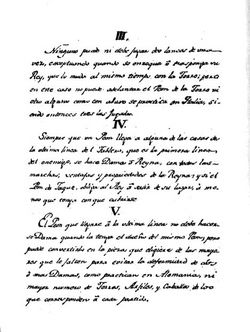 III.
Ninguno puede ni debe jugar dos lances de una
vez, exceptuando quando se enroque ó trasponga su
Rey, que lo muda al mismo tiempo con la Torre; pero
en este caso no puede adelantar el Peon de la Torre ni
otro alguno como con abuso se practica en Italia, si-
endo entonces tres las Jugadas.
IV.
Siempre que un Peon llega a alguna de las casas de
la ultima linea del Tablero, que es la primera linea
del enemigo, se hace Dama ó Reyna, con todas las
marchas, ventajas y prerrogativas de la Reyna; y si el
Peon dà Jaque, obliga al Rey á salir de su lugar, á me-
nos que tenga con que cubrirse.
V.
El Peon que llegare á la ultima linea no debe hacer-
se Dama quando la tenga el dueño del mismo Peon; pero
puede convertirlo en la pieza que eligiere de las mayo-
res que le falten para evitar la deformidad de dos,
ó mas Damas, como practican en Alemania, ni
mayor numero de Torres, Arfiles, y Caballos de los
que corresponden á cada partido.